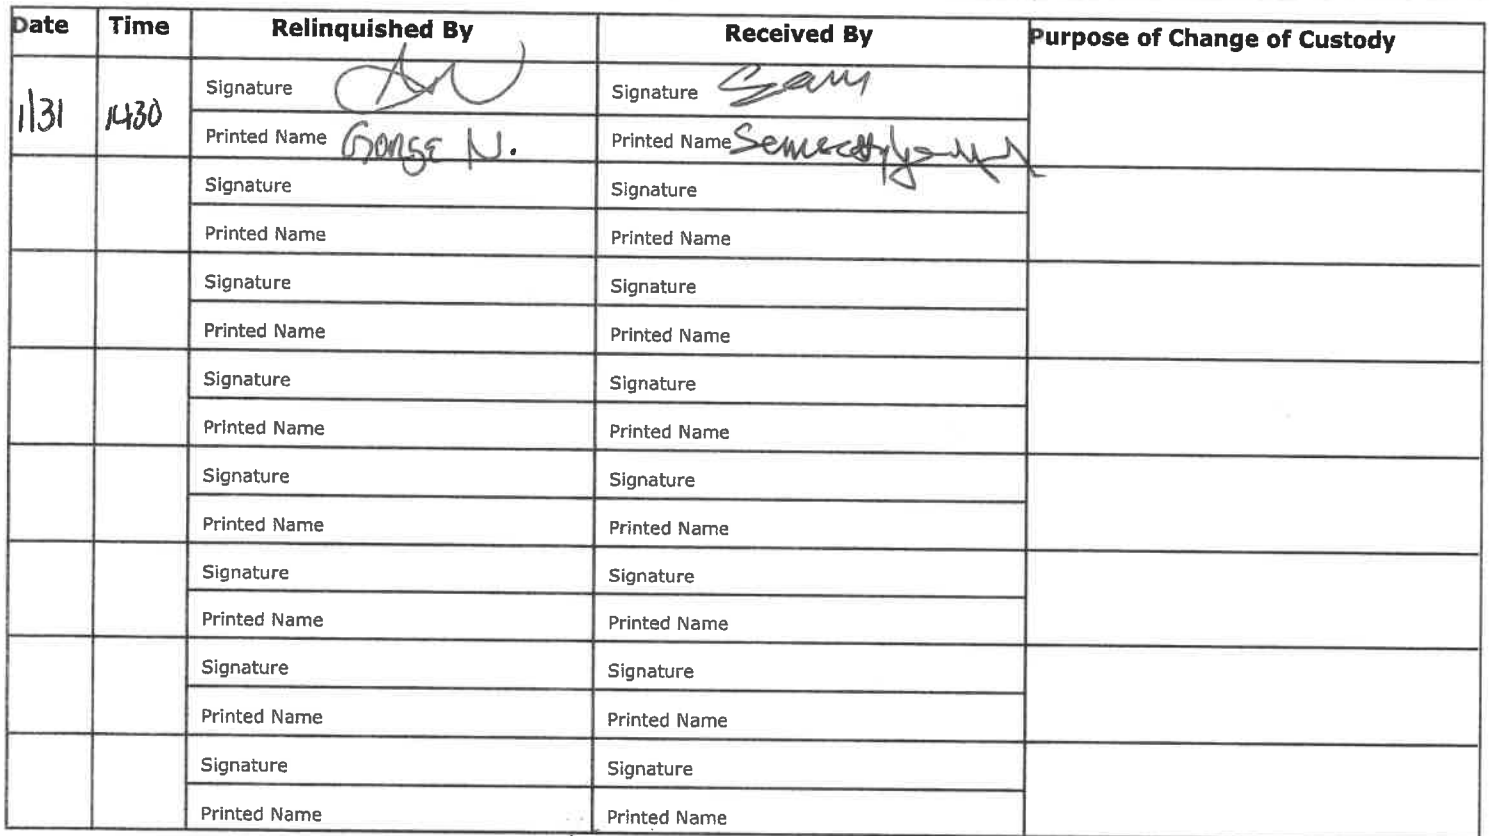 Date Time Relinquished By Received By Purpose of Change of Custody
1/31 1430 Signature Signature
Printed Name George N. Printed Name
Signature Signature
Printed Name Printed Name
Signature Signature
Printed Name Printed Name
Signature Signature
Printed Name Printed Name
Signature Signature
Printed Name Printed Name
Signature Signature
Printed Name Printed Name
Signature Signature
Printed Name Printed Name
Signature Signature
Printed Name Printed Name